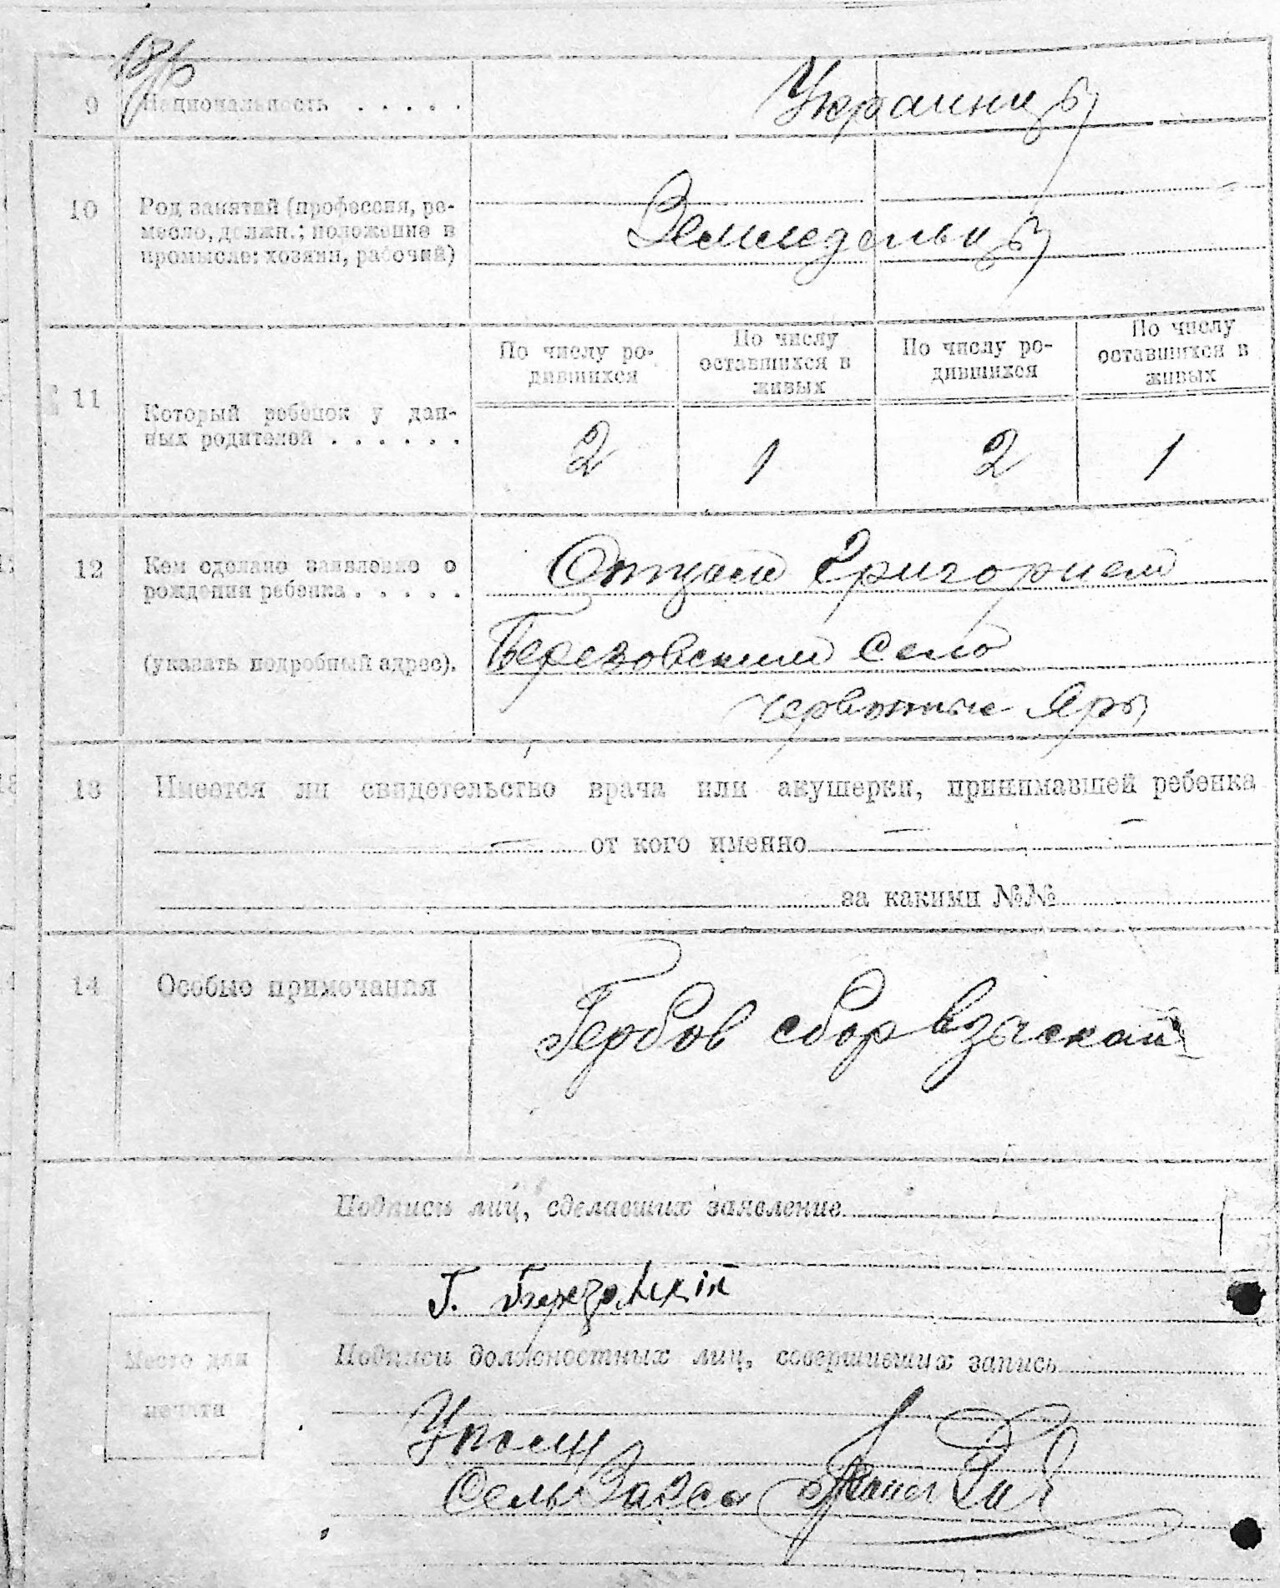 9 Национальность . . . . .
Украинцы
10 Род занятий (профессия, ре-
месло, должн.; положение в
промысле: хозяин, рабочий)
Земледельцы
11 Который ребенок у дан-
ных родителей . . . . . .
По числу ро-
дившихся
По числу
оставшихся в
живых
По числу ро-
дившихся
По числу
оставшихся в
живых
2 1 2 1
12 Кем сделано заявление о
рождении ребенка . . . . .
(указать подробный адрес).
Отцом Григорием
Березовским село
Яры
13 Имеется ли свидетельство врача или акушерки, принимавшей ребенка
— от кого именно — —
за какими №№
14 Особые примечания
Гербов сбор взыскан
Подписи лиц, сделавших заявление
Г. Березовскій
Подписи должностных лиц, совершивших запись
Место для
печати
Сель Загса